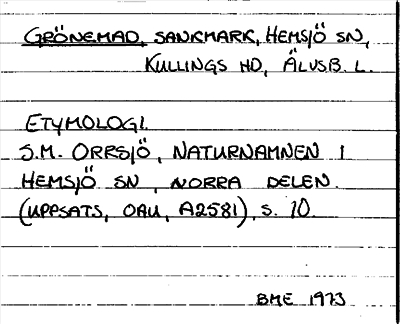 GRÖNEMAD, SANKMARK, HEMSJÖ SN,
KULLINGS HD, ÄLVSB. L.
ETYMOLOGI.
S.M. ORRSJÖ, NATURNAMNEN I
HEMSJÖ SN, NORRA DELEN.
(UPPSATS, OAU, A2581), S. 10.
BME 1973